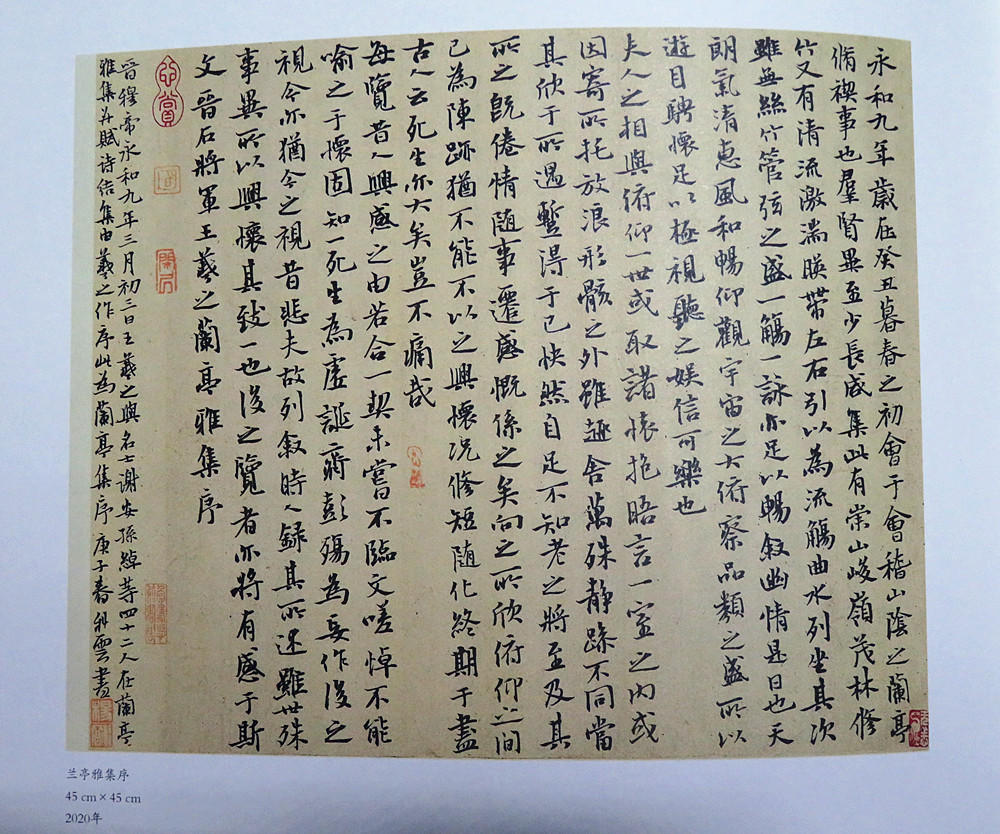 永和九年歲在癸丑暮春之初會于會稽山陰之蘭亭
脩禊事也羣賢畢至少長咸集此有崇山峻嶺茂林修
竹又有清流激湍暎帶左右引以為流觴曲水列坐其次
雖無絲竹管弦之盛一觴一詠亦足以暢敘幽情是日也天
朗氣清惠風和暢仰觀宇宙之大俯察品類之盛所以
遊目騁懷足以極視聽之娛信可樂也
夫人之相與俯仰一世或取諸懷抱晤言一室之內或
因寄所托放浪形骸之外雖趣舍萬殊静躁不同當
其欣于所遇暫得于己快然自足不知老之將至及其
所之既倦情随事遷感慨係之矣向之所欣俯仰之間
已為陳跡猶不能不以之興懷况修短随化終期于盡
古人云死生亦大矣豈不痛哉
每覽昔人興感之由若合一契未嘗不臨文嗟悼不能
喻之于懷固知一死生為虛誕齊彭殤為妄作後之
視今亦猶今之視昔悲夫故列敘時人録其所述雖世殊
事異所以興懷其致一也後之覽者亦將有感于斯
文晉右將軍王羲之蘭亭雅集序
心賞
晉穆帝永和九年三月初三日王羲之與名士謝安孫綽等四十二人在蘭亭
雅集并賦詩结集由羲之作序此為蘭亭集序庚子春雲書
兰亭雅集序
45 cm × 45 cm
2020年